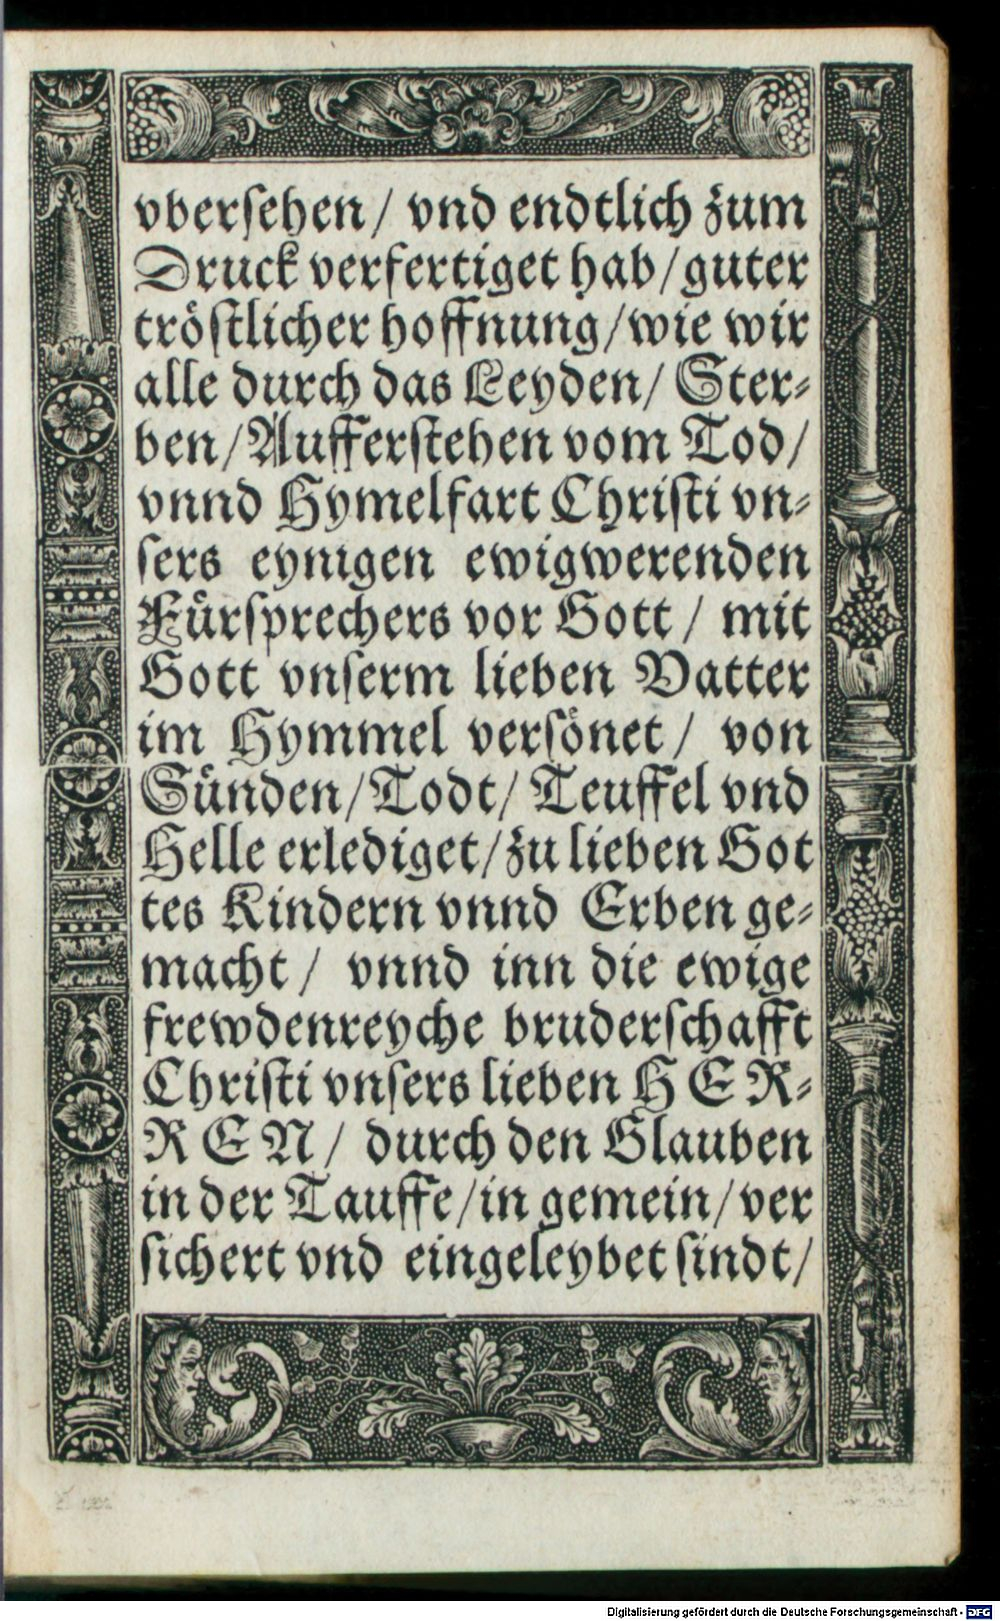 vbersehen/ vnd endtlich zum
Druck verfertiget hab/guter
tröſtlicher hoffnung/wie wir
alle durch das Leyden/ Ster⸗
ben/Aufferſtehen vom Tod/
vnnd Hymelfart Chriſti vn⸗
ſers eynigen ewigwerenden
Fürſprechers vor Gott/ mit
Gott vnſerm lieben Vatter
im Hymmel verſönet/ von
Sünden/Todt/Teuffel vnd
Helle erlediget/zu lieben Got
tes Kindern vnnd Erben ge⸗
macht/ vnnd inn die ewige
frewdenreyche bruderſchafft
Chriſti vnſers lieben HER⸗
REN/ durch den Glauben
in der Tauffe/in gemein/ver
ſichert vnd eingeleybet ſindt/
Digitalisierung gefördert durch die Deutsche Forschungsgemeinschaft - DFG